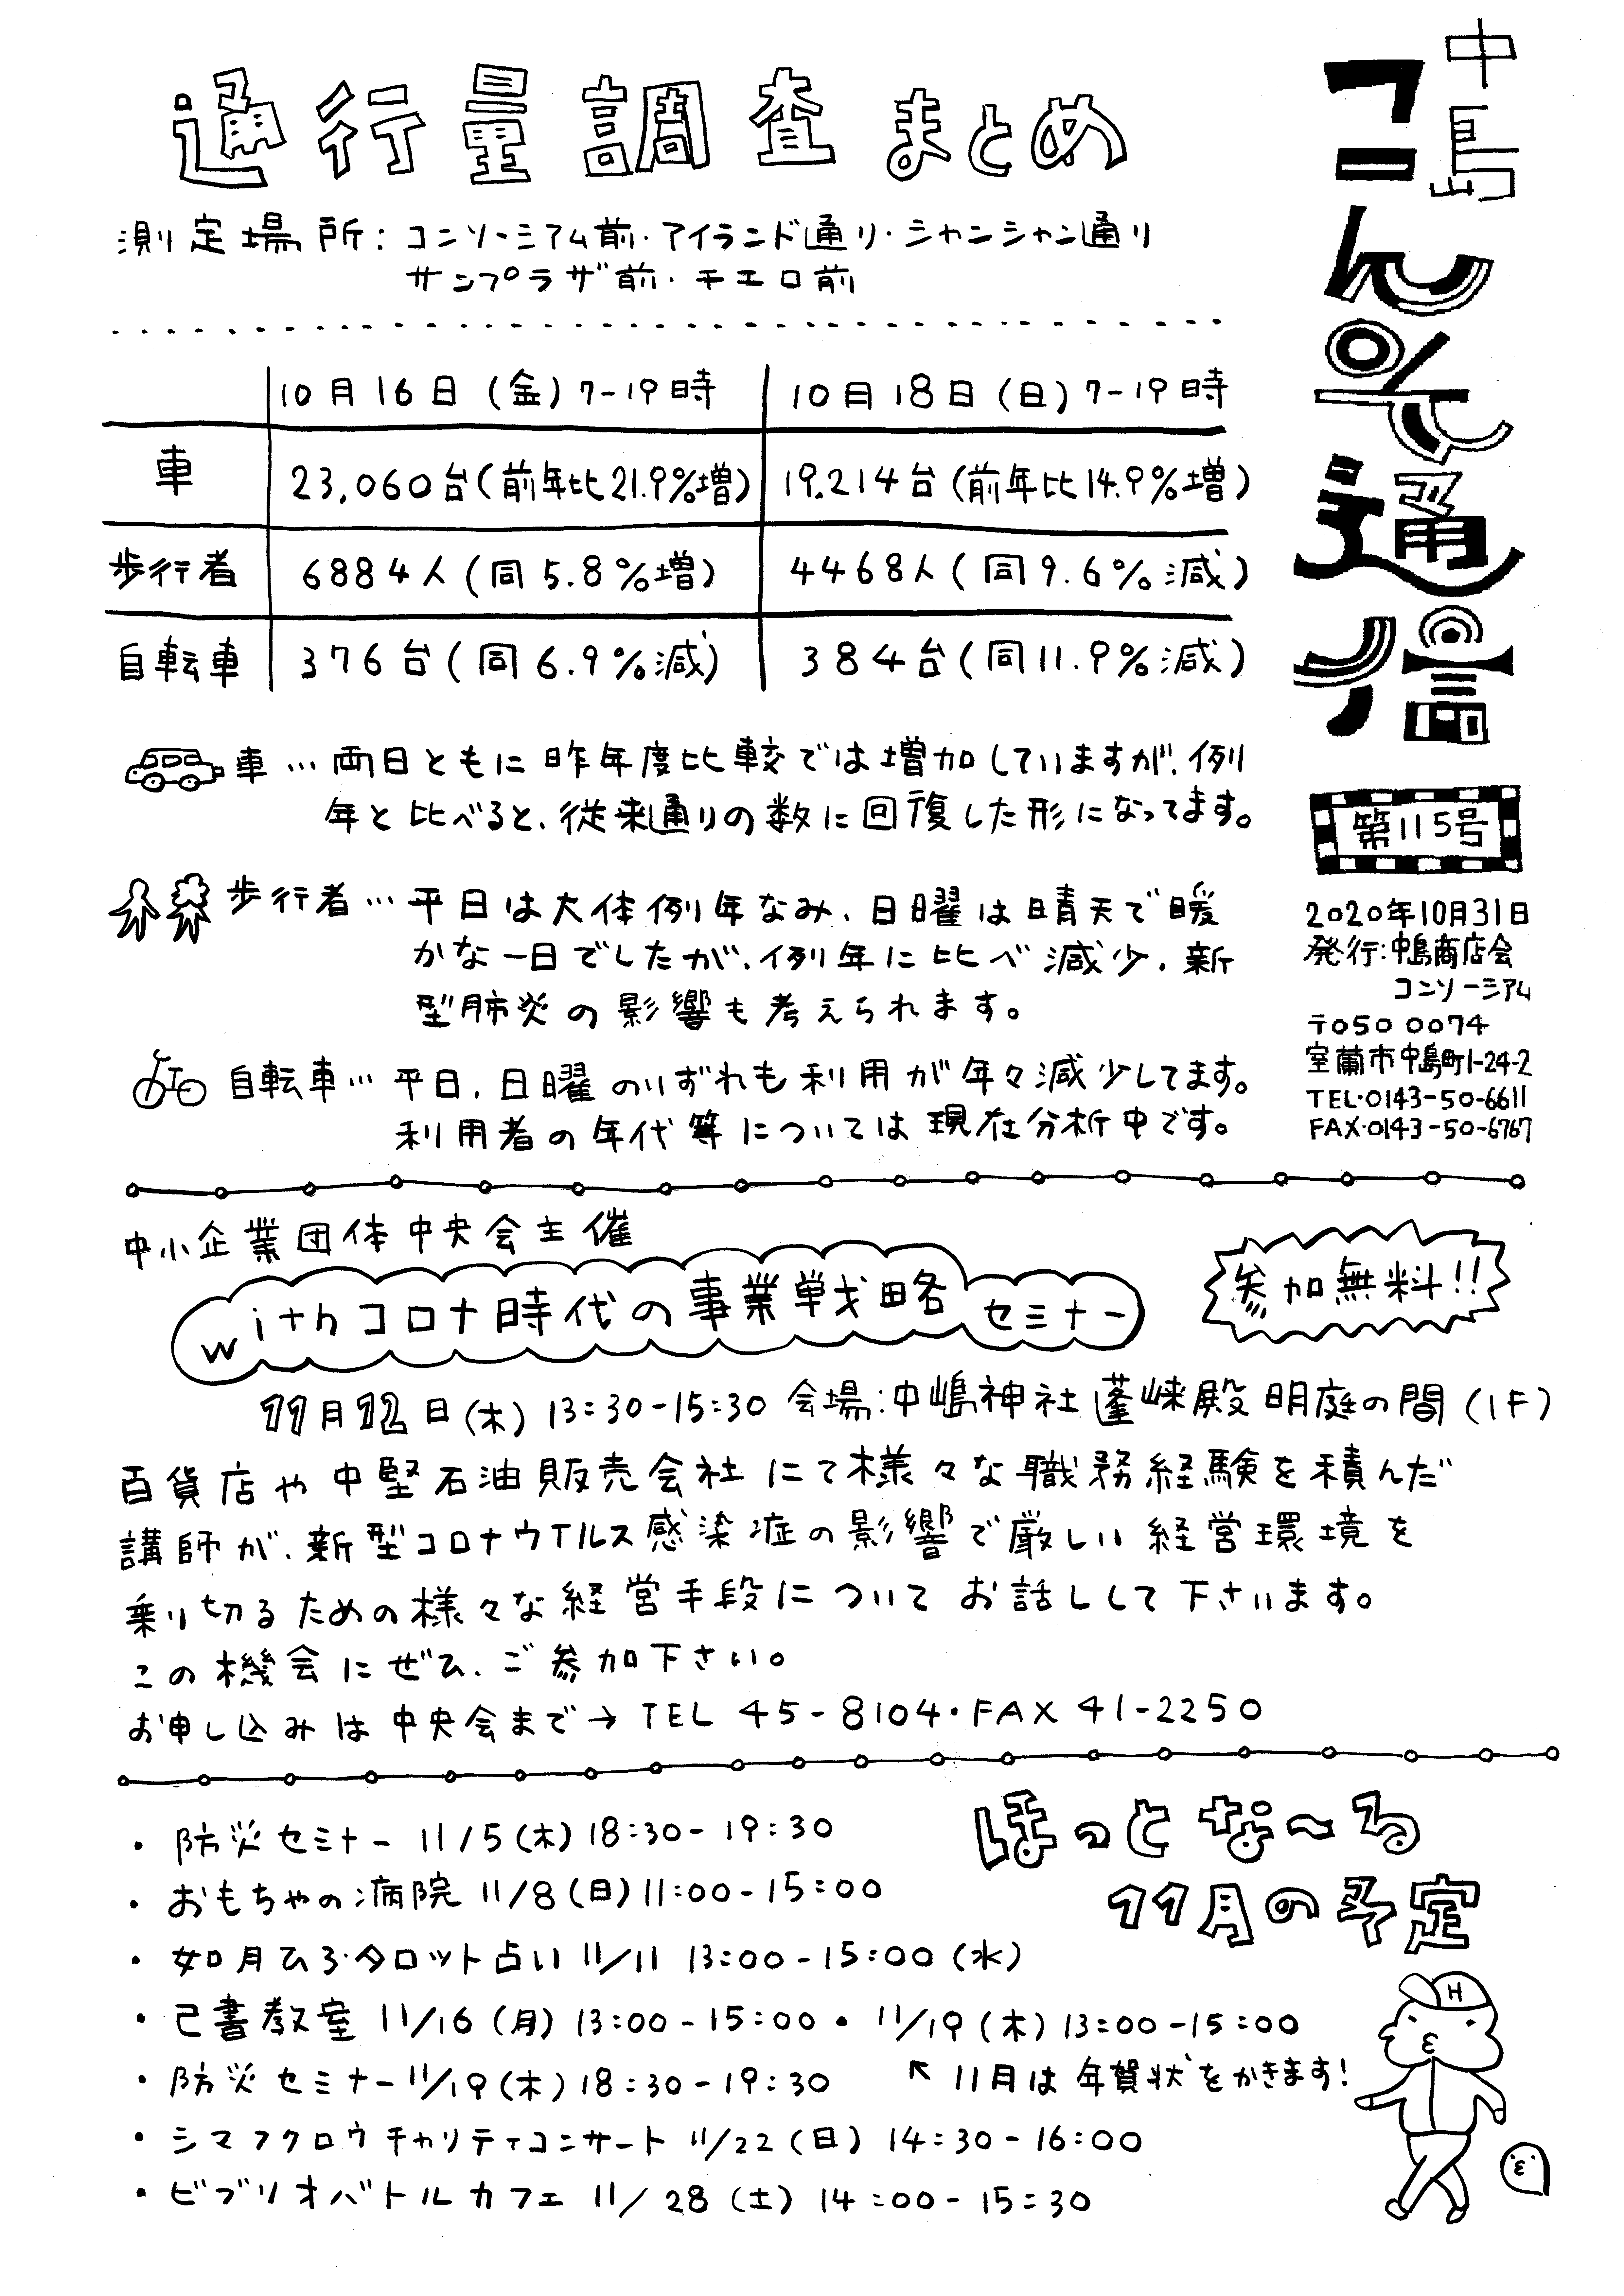 中島
コんそ通信
第115号
2020年10月31日
発行:中島商店会
コンソーシアム
〒050 0074
室蘭市中島町1-24-2
TEL・0143-50-6611
FAX・0143-50-6767
通行量調査まとめ
測定場所:コンソーシアム前・アイランド通り・シャンシャン通り
サンプラザ前・チエロ前
10月16日(金)7-19時 10月18日(日)7-19時
車 23,060台(前年比21.9%増) 19.214台(前年比14.9%増)
歩行者 6884人(同5.8%増) 4468人(同9.6%減)
自転車 376台(同6.9%減) 384台(同11.9%減)
車…両日ともに昨年度比較では増加していますが、例
年と比べると、従来通りの数に回復した形になってます。
歩行者…平日は大体例年なみ、日曜は晴天で暖
かな一日でしたが、例年に比べ減少、新
型肺炎の影響も考えられます。
自転車…平日、日曜のいずれも利用が年々減少してます。
利用者の年代等については現在分析中です。
中小企業団体中央会主催
withコロナ時代の事業戦略セミナー
参加無料!!
11月12日(木)13:30-15:30 会場:中嶋神社蓬崍殿明庭の間(1F)
百貨店や中堅石油販売会社にて様々な職務経験を積んだ
講師が、新型コロナウイルス感染症の影響で厳しい経営環境を
乗り切るための様々な経営手段についてお話しして下さいます。
この機会にぜひ、ご参加下さい。
お申し込みは中央会まで→TEL 45-8104・FAX 41-2250
ほっとな〜る
11月の予定
・防災セミナー 11/5(木)18:30-19:30
・おもちゃの病院 11/8(日)11:00-15:00
・如月ひろ・タロット占い 11/11 13:00-15:00(水)
・己書教室 11/16(月)13:00-15:00・11/19(木)13:00-15:00
↖11月は年賀状をかきます!
・防災セミナー11/19(木)18:30-19:30
・シマフクロウチャリティコンサート 11/22(日)14:30-16:00
・ビブリオバトルカフェ 11/28(土)14:00-15:30
H